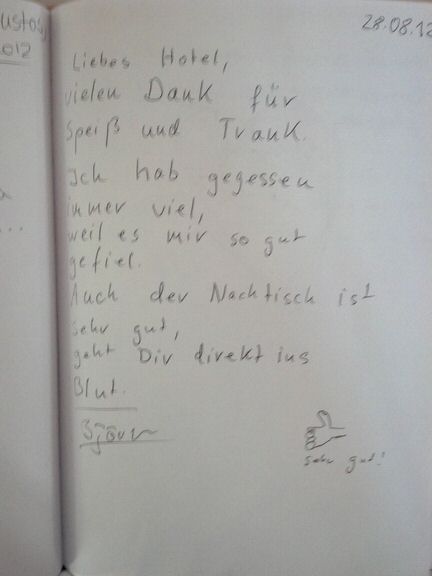 ustos
2012
28.08.12
Liebes Hotel,
vielen Dank für
Speiß und Trank.
Ich hab gegessen
immer viel,
weil es mir so gut
gefiel.
Auch der Nachtisch ist
sehr gut,
geht Dir direkt ins
Blut.
Björn
sehr gut!